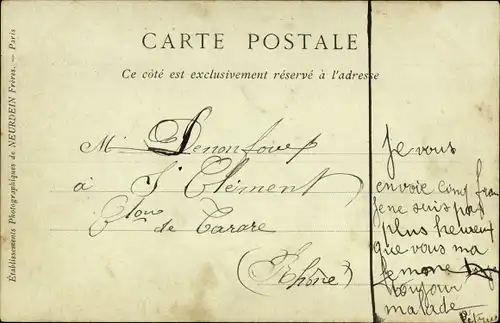 CARTE POSTALE
Ce côté est exclusivement réservé à l'adresse
Etablissements Photographiques de NEURDEIN Frères. — Paris
M
à St Clément
de Tarare
(Rhône)
Je vous
envoie cinq fran
je ne suis pas
plus heureux
que vous ma
toujour
malade